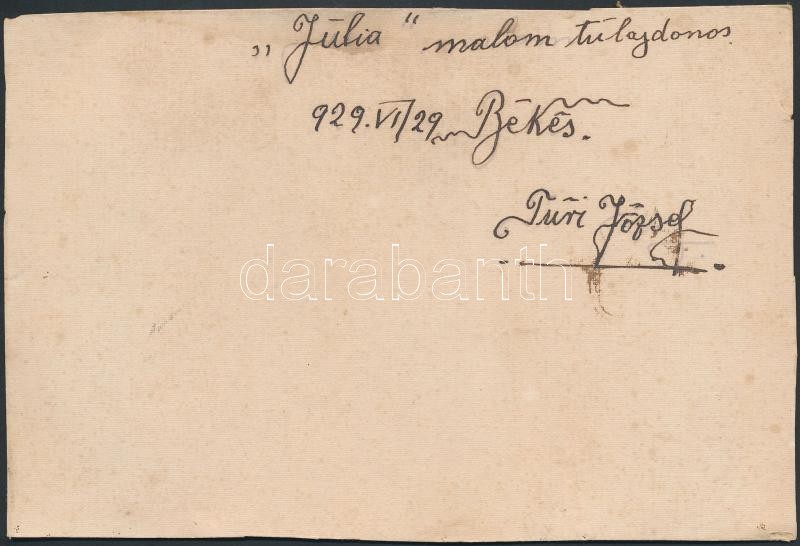 „Júlia“ malom túlajdonos.
929.VI/29 Békés.
Túri József
darabanth